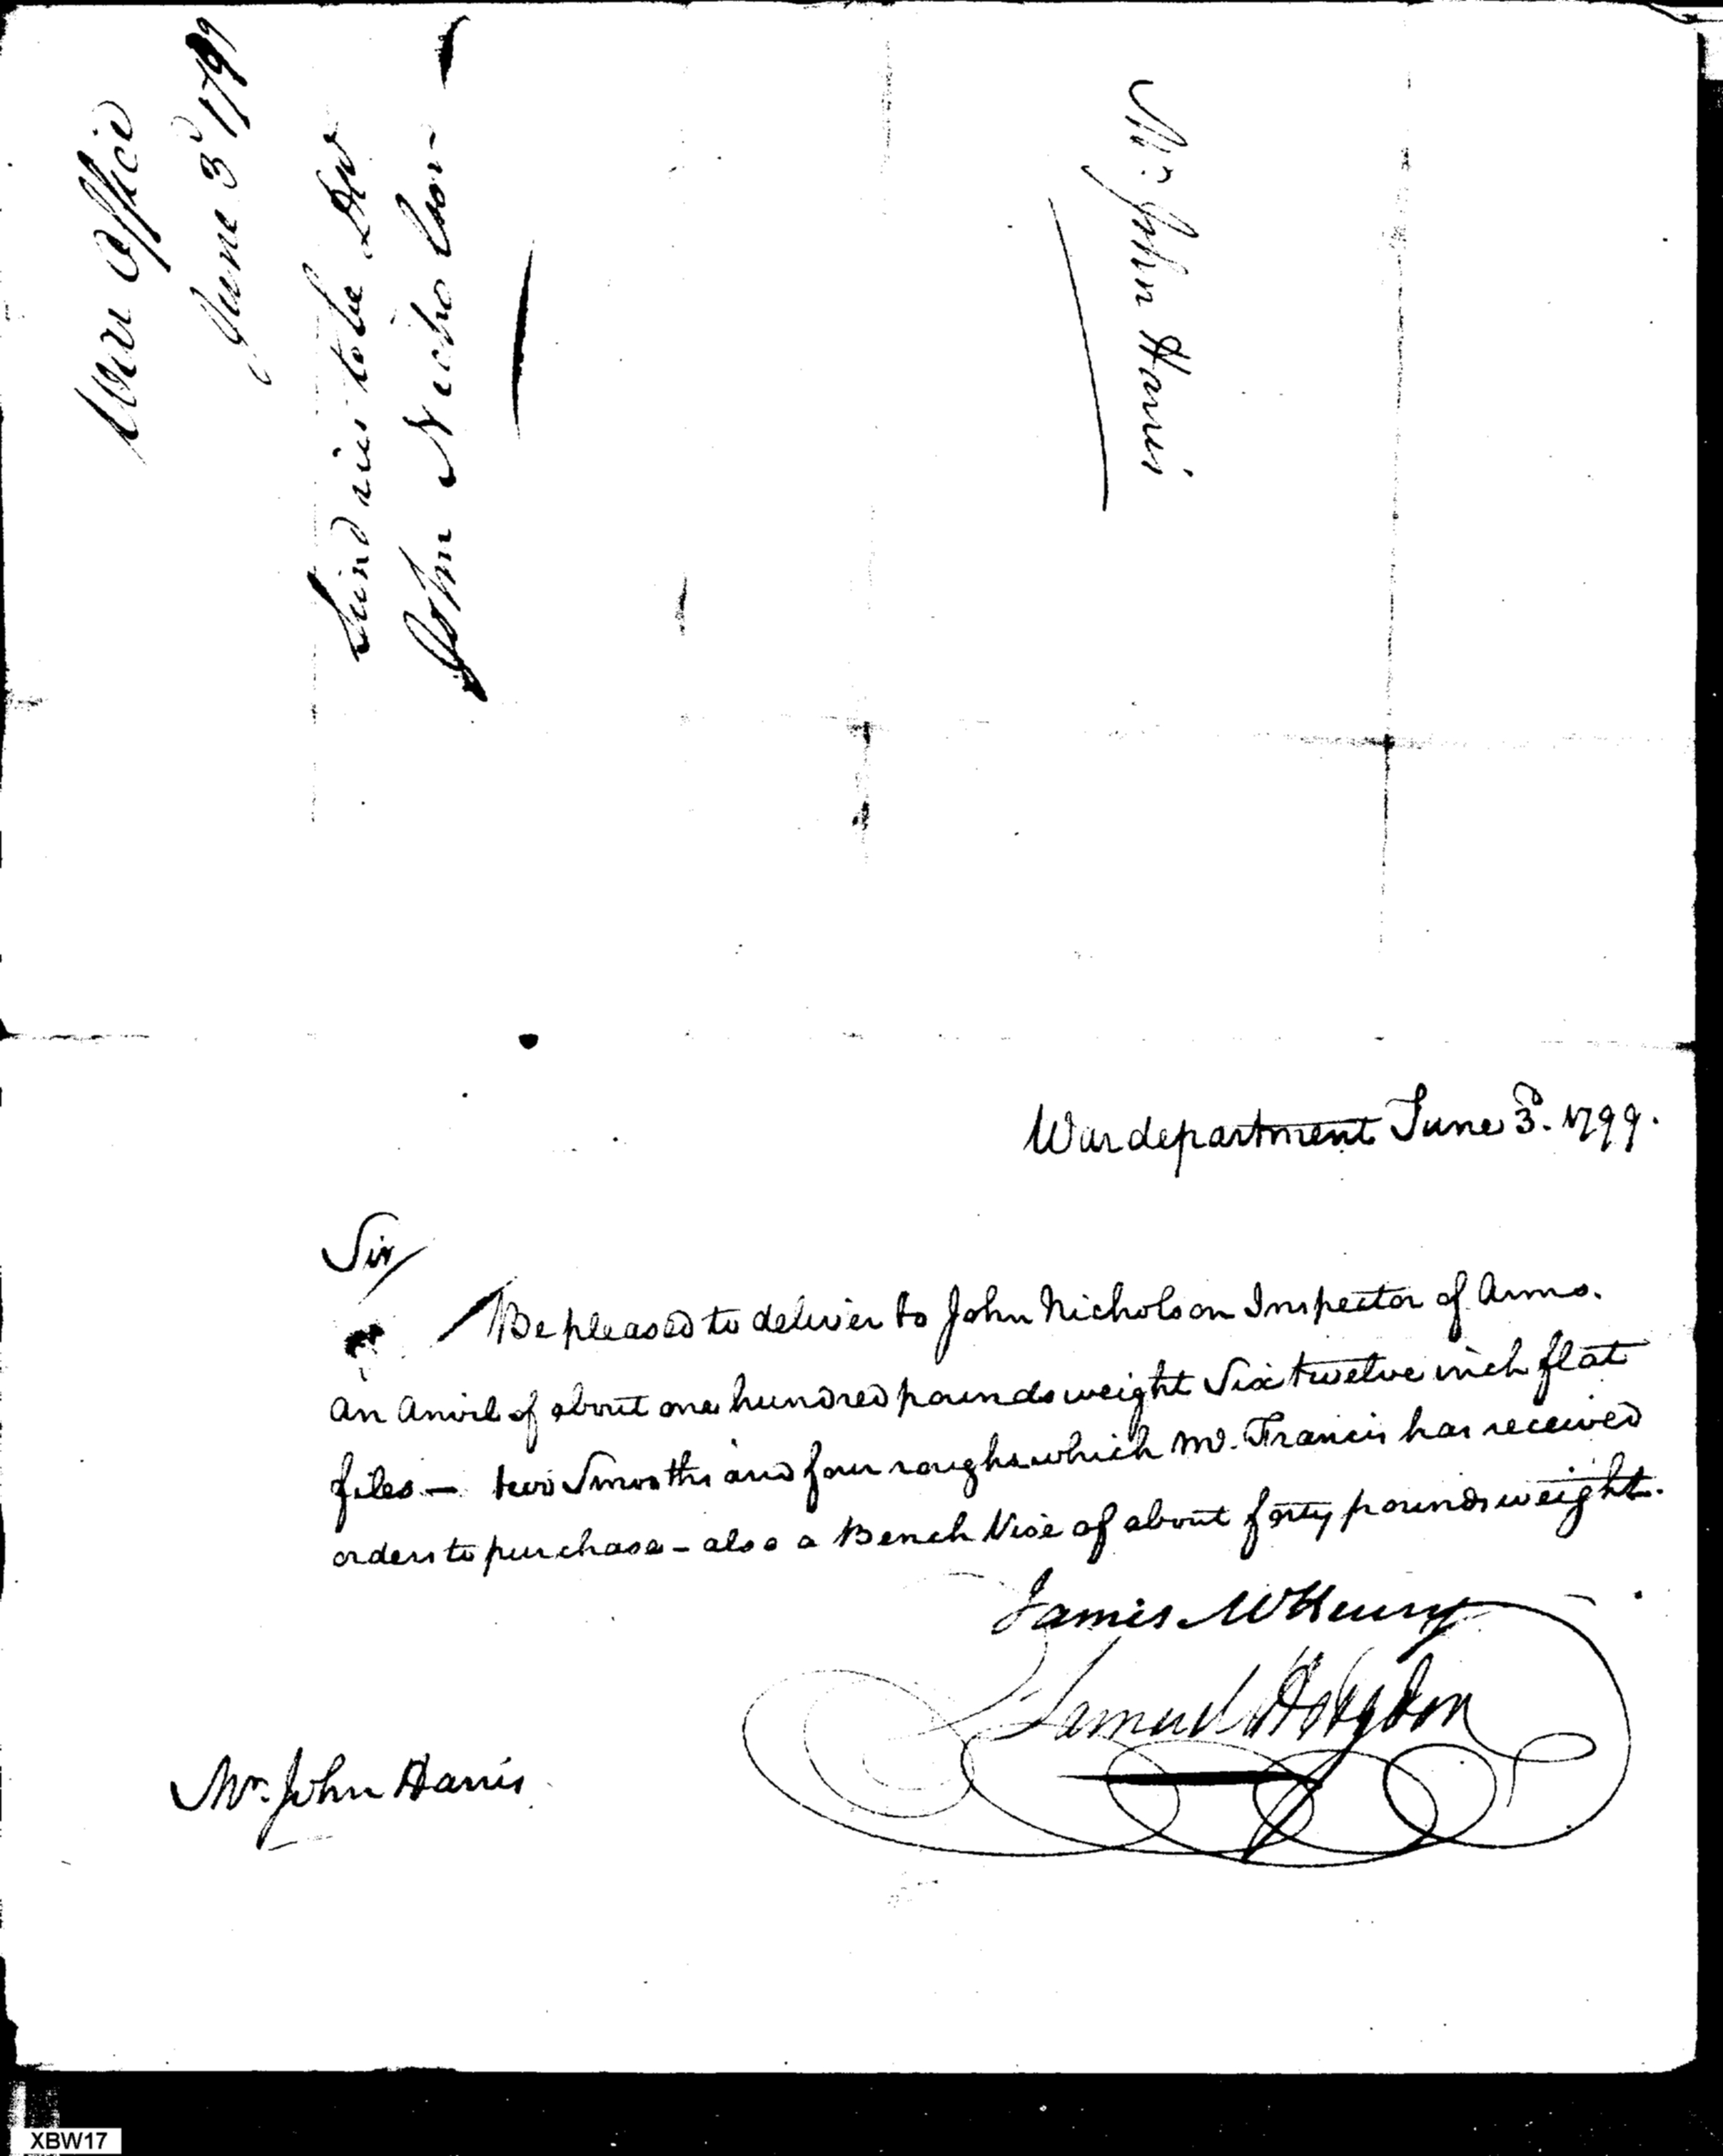 War Office
June 3d 1799
Sundries to be DD
John Nicholson
Mr. John Harris
War department June 3d. 1799.
Sir
Be pleased to deliver to John Nicholson Inspector of Arms.
an Anvil of about one hundred pounds weight Six twelve inch flat
files - two Smooths and four roughs which Mr. Francis has received
orders to purchase - also a Bench Vise of about forty pounds weight.
James McHenry
Samuel Hodgdon
Mr. John Harris
XBW17